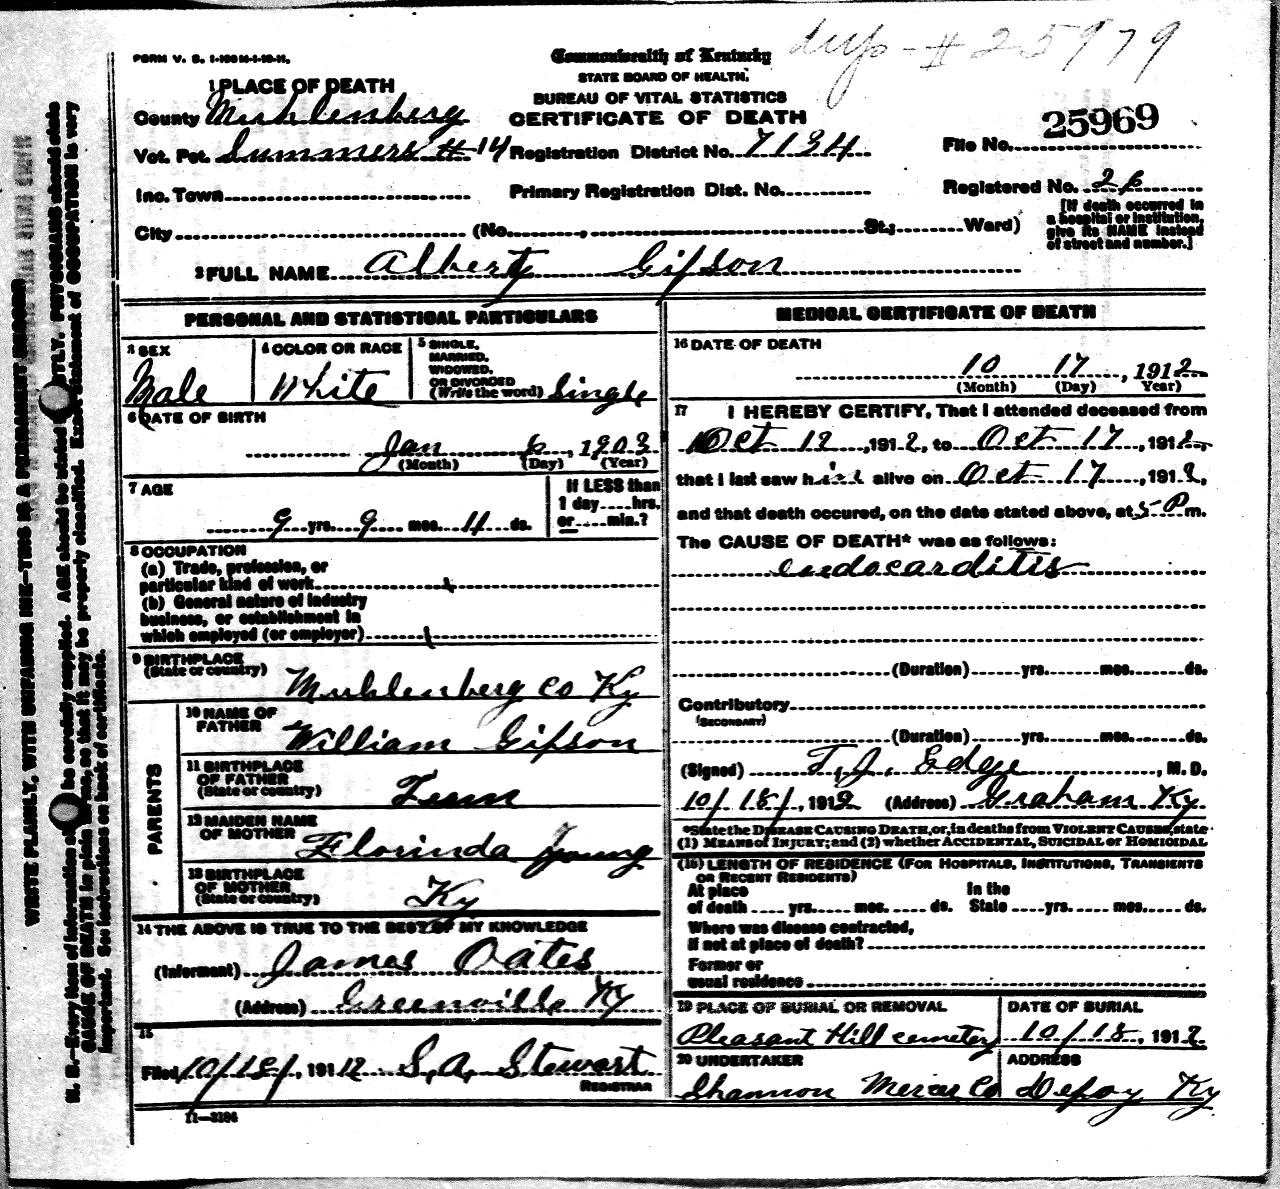 dup - # 25979
FORM V. S. 1-100 M-1-10-11.
Commonwealth of Kentucky
STATE BOARD OF HEALTH.
BUREAU OF VITAL STATISTICS
CERTIFICATE OF DEATH
1 PLACE OF DEATH
County Muhlenberg
Vot. Pct. Summers # 14 Registration District No. 7134 File No. 25969
Inc. Town Primary Registration Dist. No. Registered No. 26
City (No. , St.; Ward) [If death occurred in
a hospital or institution,
give its NAME instead
of street and number.]
2 FULL NAME Albert Gipson
PERSONAL AND STATISTICAL PARTICULARS
3 SEX
Male
4 COLOR OR RACE
White
5 SINGLE,
MARRIED,
WIDOWED,
OR DIVORCED
(Write the word) Single
6 DATE OF BIRTH
Jan 6, 1903
(Month) (Day) (Year)
7 AGE
9 yrs. 9 mos. 11 ds.
If LESS than
1 day hrs.
or min.?
8 OCCUPATION
(a) Trade, profession, or
particular kind of work
(b) General nature of industry
business, or establishment in
which employed (or employer)
9 BIRTHPLACE
(State or country)
Muhlenberg Co Ky
PARENTS
10 NAME OF
FATHER
William Gipson
11 BIRTHPLACE
OF FATHER
(State or country)
Tenn
12 MAIDEN NAME
OF MOTHER
Florinda Young
13 BIRTHPLACE
OF MOTHER
(State or country)
Ky
14 THE ABOVE IS TRUE TO THE BEST OF MY KNOWLEDGE
(Informant) James Oates
(Address) Greenville Ky
15
Filed 10/18/, 1912 S. A. Stewart
REGISTRAR
11-3184
MEDICAL CERTIFICATE OF DEATH
16 DATE OF DEATH
10 17, 1912
(Month) (Day) Year)
17 I HEREBY CERTIFY, That I attended deceased from
Oct 12, 1912, to Oct 17, 1912,
that I last saw him alive on Oct 17, 1912,
and that death occured, on the date stated above, at 5 P m.
The CAUSE OF DEATH* was as follows:
endocarditis
(Duration) yrs. mos. ds.
Contributory
(SECONDARY)
(Duration) yrs. mos. ds.
(Signed) T. J. Edge, M. D.
10/18/, 1912 (Address) Graham Ky
*State the DISEASE CAUSING DEATH, or, in deaths from VIOLENT CAUSES, state
(1) MEANS of INJURY; and (2) whether ACCIDENTAL, SUICIDAL or HOMICIDAL
(18) LENGTH OF RESIDENCE (FOR HOSPITALS, INSTITUTIONS, TRANSIENTS
OR RECENT RESIDENTS)
At place In the
of death yrs. mos. ds. State yrs. mos. ds.
Where was disease contracted,
if not at place of death?
Former or
usual residence
19 PLACE OF BURIAL OR REMOVAL
Pleasant Hill cemetery
DATE OF BURIAL
10/18, 1912
20 UNDERTAKER
Shannon Merc Co
ADDRESS
Depoy Ky
WRITE PLAINLY, WITH UNFADING INK—THIS IS A PERMANENT RECORD
N. B.—Every item of information should be carefully supplied. AGE should be stated EXACTLY. PHYSICIANS should state
CAUSE OF DEATH in plain terms, so that it may be properly classified. Exact statement of OCCUPATION is very
important. See instructions on back of certificate.